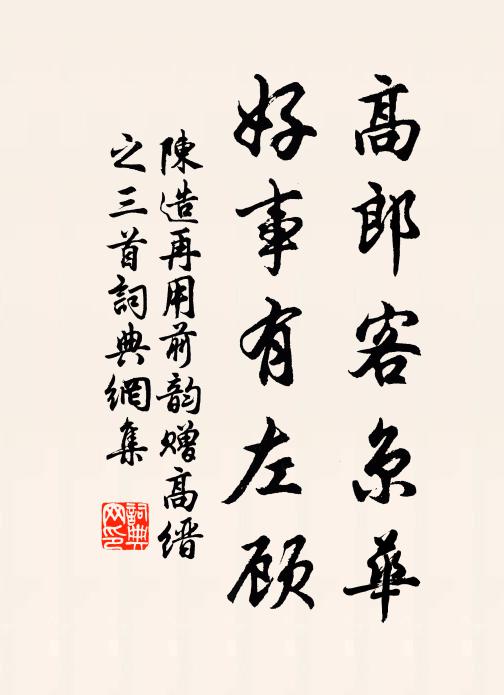 高郎客京華
好事有左顾
陳造再用前韵赠高缙
之三首詞典網集
詞典網印